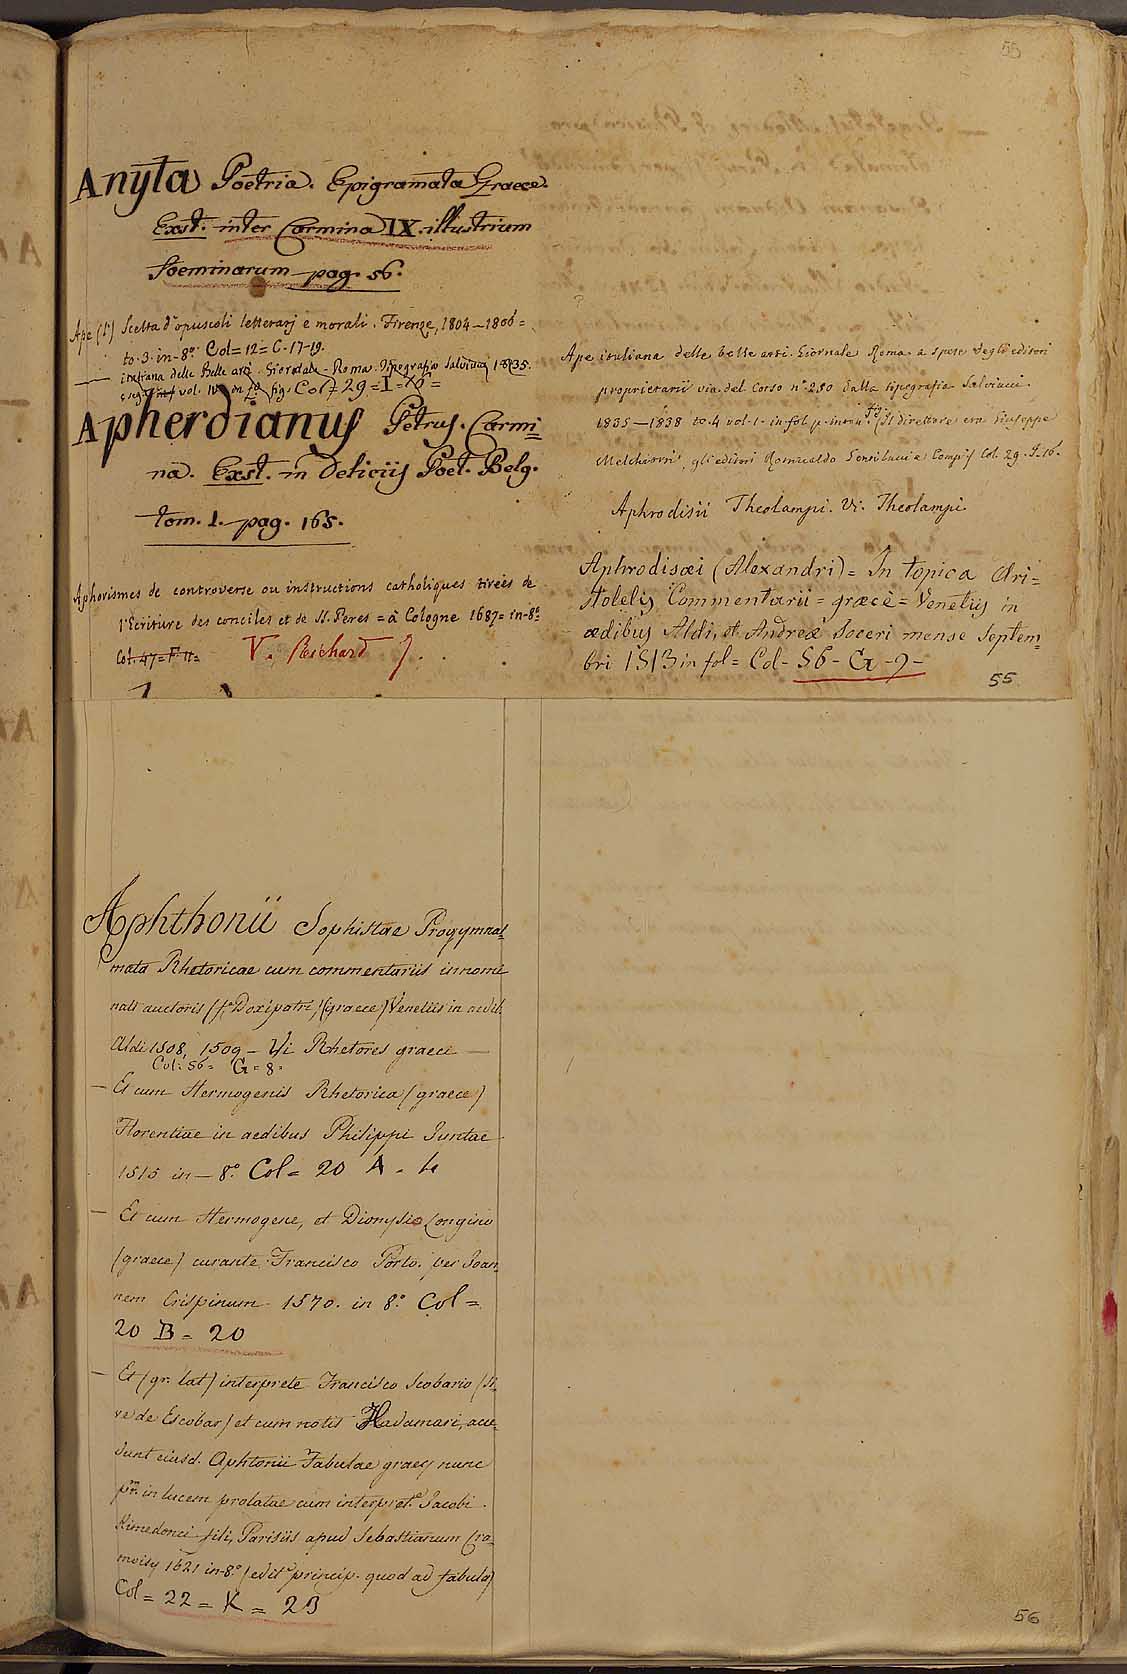 55
Anyta Poetria. Epigramata Graece.
Exst. inter Carmina IX. illustrium
Foeminarum pag. 56.
Ape (l') Scelta d'opuscoli letterarj e morali. Firenze, 1804-1806=
to. 3. in-8.º Col=12=C-17-19.
— italiana delle Belle arti. Giornale - Roma. Tipografia Salviucci 1835.
e seg. vol. IV in fº fig. Col 29=I=16=
Apherdianus Petrus. Carmi=
na. Exst. in Deliciis Poet. Belg.
tom. 1. pag. 165.
Aphorismes de controverse ou instructions catholiques tirées de
l'Ecriture des conciles et de SS. Peres = à Cologne 1687= in-8º
Col. 47=F 11= V.
Ape italiana delle belle arti. Giornale Roma a spese degli editori
proprietarii via del Corso nº 250 dalla tipografia Salviucci
1835-1838 to. 4 vol. 1. in fol. fig (Il direttore era Giuseppe
Melchiorri, gli editori Romualdo Gentilucci e Comp.i) Col. 29. I-16.
Aphrodisii Theolampi. Vi. Theolampi
Aphrodisæi (Alexandri)= In topica Ari=
stotelis Commentarii = græcè = Venetiis in
ædibus Aldi, et Andreæ Soceri mense Septem
bri 1513 in fol= Col- 56- G -9-
55
Aphthonii Sophistae Progymnas
mata Rhetoricae cum commentariis innomi
nati auctoris (f. Doxipatri) (graece) Venetiis in aedib.
Aldi 1508, 1509 - Vi Rhetores graeci —
Col: 56= G=8=
— Et cum Hermogenis Rhetorica (graece)
Florentiae in aedibus Philippi Juntae
1515 in-8º. Col= 20 A - 4
— Et cum Hermogene, et Dionysio Longino
(graece) curante Francisco Porto. per Joan
nem Crispinum 1570. in 8º. Col=
20 B= 20
— Et (gr. lat) interprete Francisco Scobario (si
ve de Escobar) et cum notis Hadamari, acce
dunt eiusd. Aphtonii Fabulae graece nunc
pm. in lucem prolatae cum interpret.e Jacobi
Kimedonci fili, Parisiis apud Sebastianum Cra
moisy 1621 in-8º (edit.º princip. quod ad fabulas)
Col= 22= K= 23
56